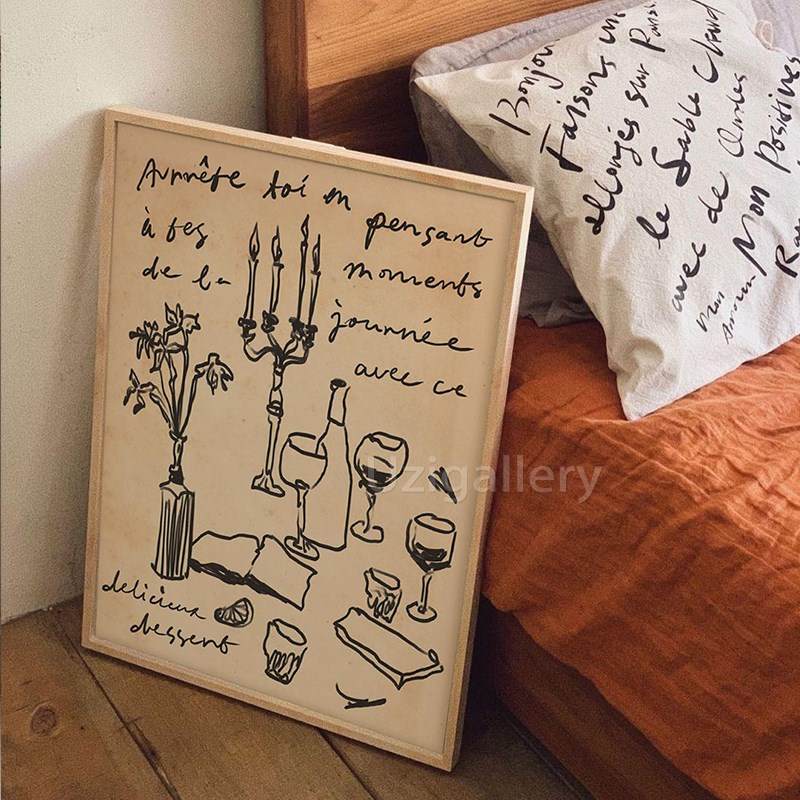 Arrête toi en pensant
à tes moments
de la journée
avec ce
delicieux
dessert
Uzigallery
Bonjour
Faisons un
allongés sur
le Sable chaud
avec de
Mon Positives
Mon Amour